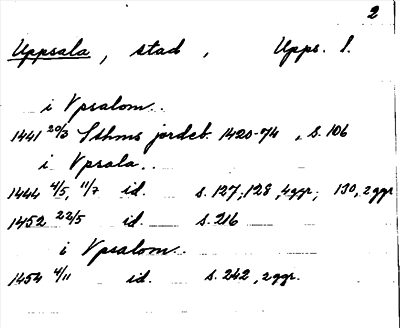 2
Uppsala, stad, Upps. l.
i Vpsalom..
1441 20/3 Sthms jordeb. 1420-74, s. 106
i Vpsala..
1444 4/5, 11/7 id. s. 127, 128, 4ggr, 130, 2ggr
1452 22/5 id. s. 216
i Vpsalom..
1454 4/11 id. s. 242, 2ggr.